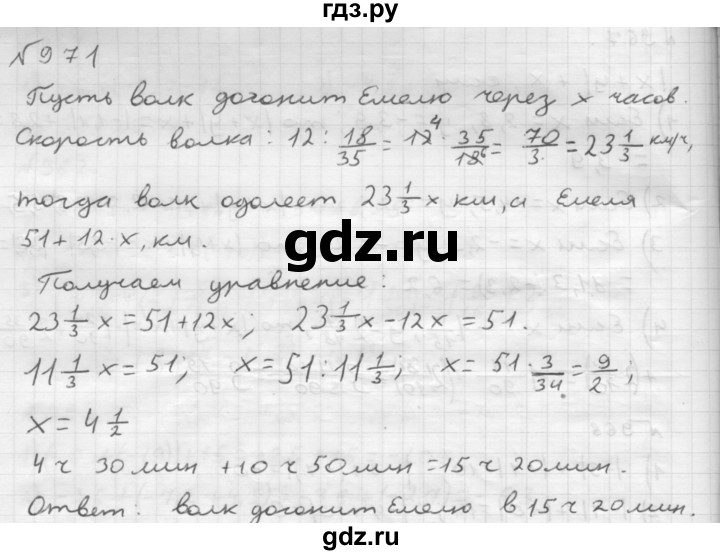 гдз.ру
№971
Пусть волк догонит Емелю через x часов.
Скорость волка: 12 : 18/35 = 12⁴ · 35/18₆ = 70/3 = 23 1/3 км/ч,
тогда волк одолеет 23 1/3 x км, а Емеля
51 + 12 · x, км.
gdz.ru
Получаем уравнение:
23 1/3 x = 51 + 12x; 23 1/3 x - 12x = 51.
11 1/3 x = 51; x = 51 : 11 1/3; x = 51 · 3/34 = 9/2;
x = 4 1/2
4 ч 30 мин + 10 ч 50 мин = 15 ч 20 мин.
Ответ: волк догонит Емелю в 15 ч 20 мин.
gdz.ru